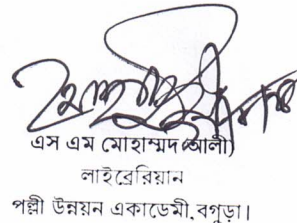 এস এম মোহাম্মদ আলী
লাইব্রেরিয়ান
পল্লী উন্নয়ন একাডেমী,বগুড়া।